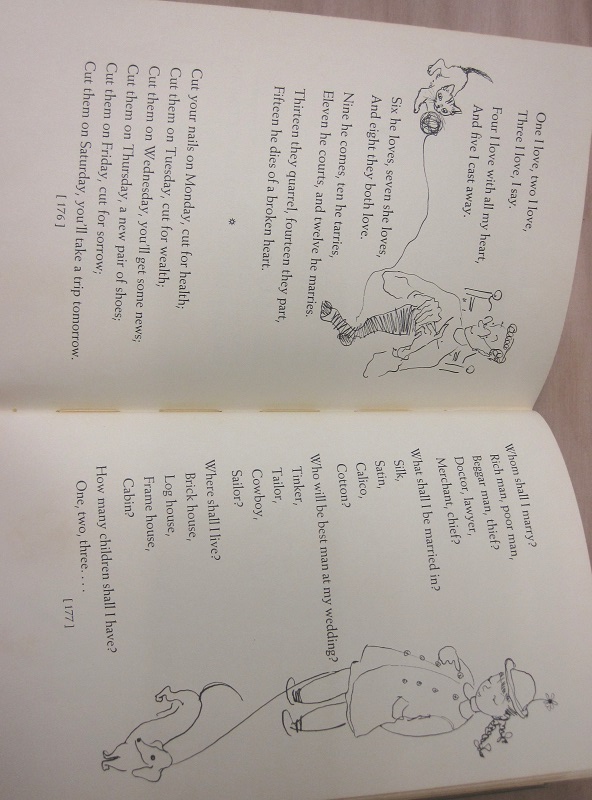 One I love, two I love,
Three I love, I say.
Four I love with all my heart,
And five I cast away.
Six he loves, seven she loves,
And eight they both love.
Nine he comes, ten he tarries,
Eleven he courts, and twelve he marries.
Thirteen they quarrel, fourteen they part,
Fifteen he dies of a broken heart.
*
Cut your nails on Monday, cut for health;
Cut them on Tuesday, cut for wealth;
Cut them on Wednesday, you'll get some news;
Cut them on Thursday, a new pair of shoes;
Cut them on Friday, cut for sorrow;
Cut them on Saturday, you'll take a trip tomorrow.
[ 176 ]
Whom shall I marry?
Rich man, poor man,
Beggar man, thief?
Doctor, lawyer,
Merchant, chief?
What shall I be married in?
Silk,
Satin,
Calico,
Cotton?
Who will be best man at my wedding?
Tinker,
Tailor,
Cowboy,
Sailor?
Where shall I live?
Brick house,
Log house,
Frame house,
Cabin?
How many children shall I have?
One, two, three. . . .
[ 177 ]